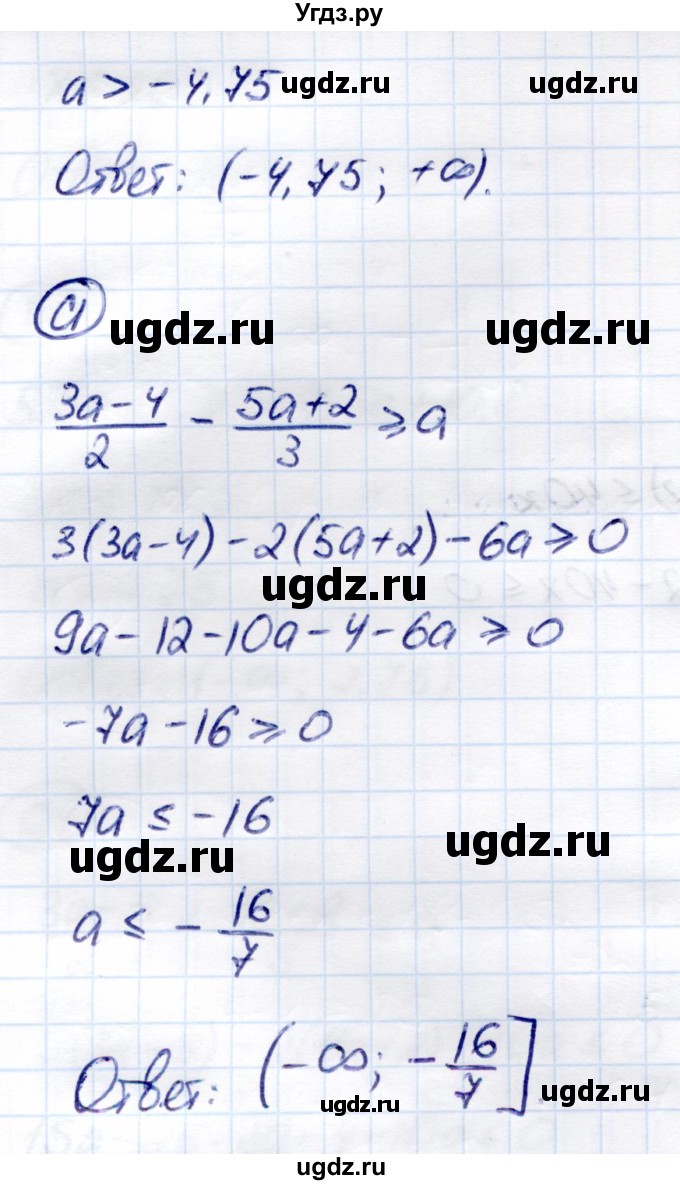 Угдз.ру
a > -4,75
ugdz.ru ugdz.ru
Ответ: (-4,75; +∞).
C1
ugdz.ru ugdz.ru
(3a-4)/2 - (5a+2)/3 ≥ a
3(3a-4)-2(5a+2)-6a ≥ 0
ugdz.ru
9a-12-10a-4-6a ≥ 0
-7a-16 ≥ 0
7a ≤ -16
ugdz.ru ugdz.ru
a ≤ -16/7
Ответ: (-∞; -16/7].
ugdz.ru ugdz.ru
ugdz.ru